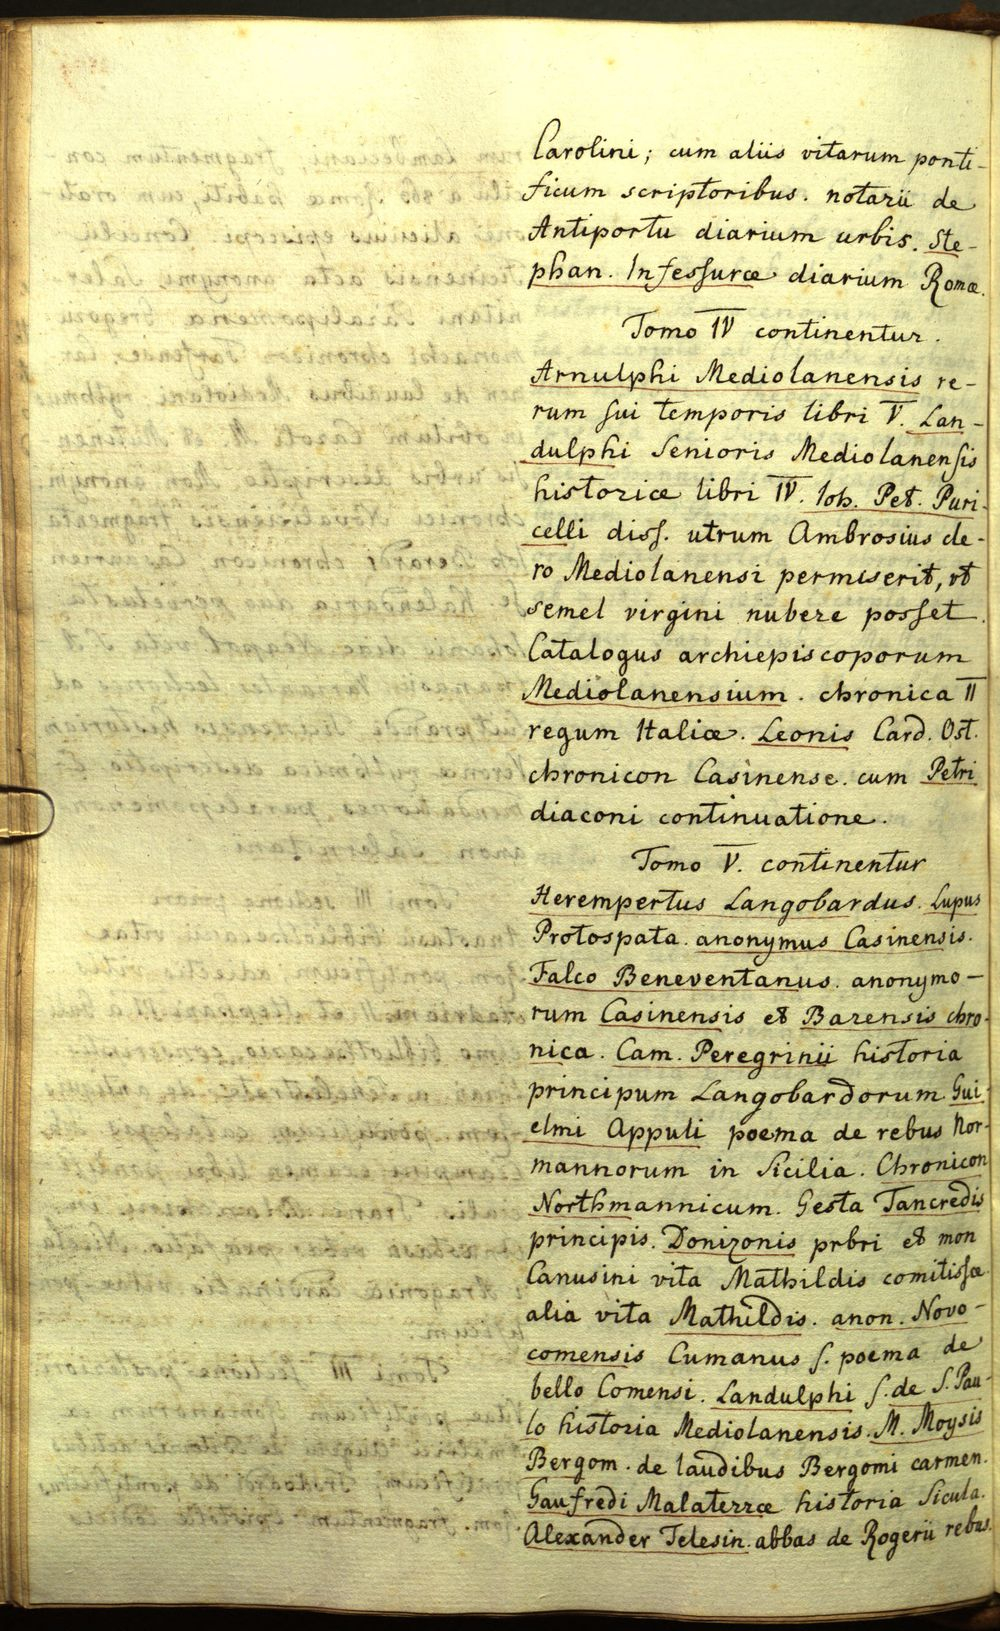 Carolini; cum aliis vitarum ponti-
ficum scriptoribus. notarii de
Antiportu diarium urbis. Ste-
phan. Infessuræ diarium Romæ.
Tomo IV continentur.
Arnulphi Mediolanensis re-
rum sui temporis libri V. Lan-
dulphi Senioris Mediolanensis
historiæ libri IV. Ioh. Pet. Puri-
celli diss. utrum Ambrosius cle-
ro Mediolanensi permiserit, vt
semel virgini nubere posset.
Catalogus archiepiscoporum
Mediolanensium. chronica II
regum Italiæ. Leonis Card. Ost.
chronicon Casinense. cum Petri
diaconi continuatione.
Tomo V. continentur
Herempertus Langobardus. Lupus
Protospata. anonymus Casinensis.
Falco Beneventanus. anonymo-
rum Casinensis et Barensis chro-
nica. Cam. Peregrinii historia
principum Langobardorum. Gui-
elmi Appuli poema de rebus Nor-
mannorum in Sicilia. Chronicon
Northmannicum. Gesta Tancredis
principis. Donizonis prbri et mon
Canusini vita Mathildis comitissæ.
alia vita Mathildis. anon. Novo-
comensis Cumanus s. poema de
bello Comensi. Landulphi s. de S. Pau-
lo historia Mediolanensis. M. Moysis
Bergom. de laudibus Bergomi carmen.
Gaufredi Malaterræ historia Sicula.
Alexander Telesin. abbas de Rogerii rebus.